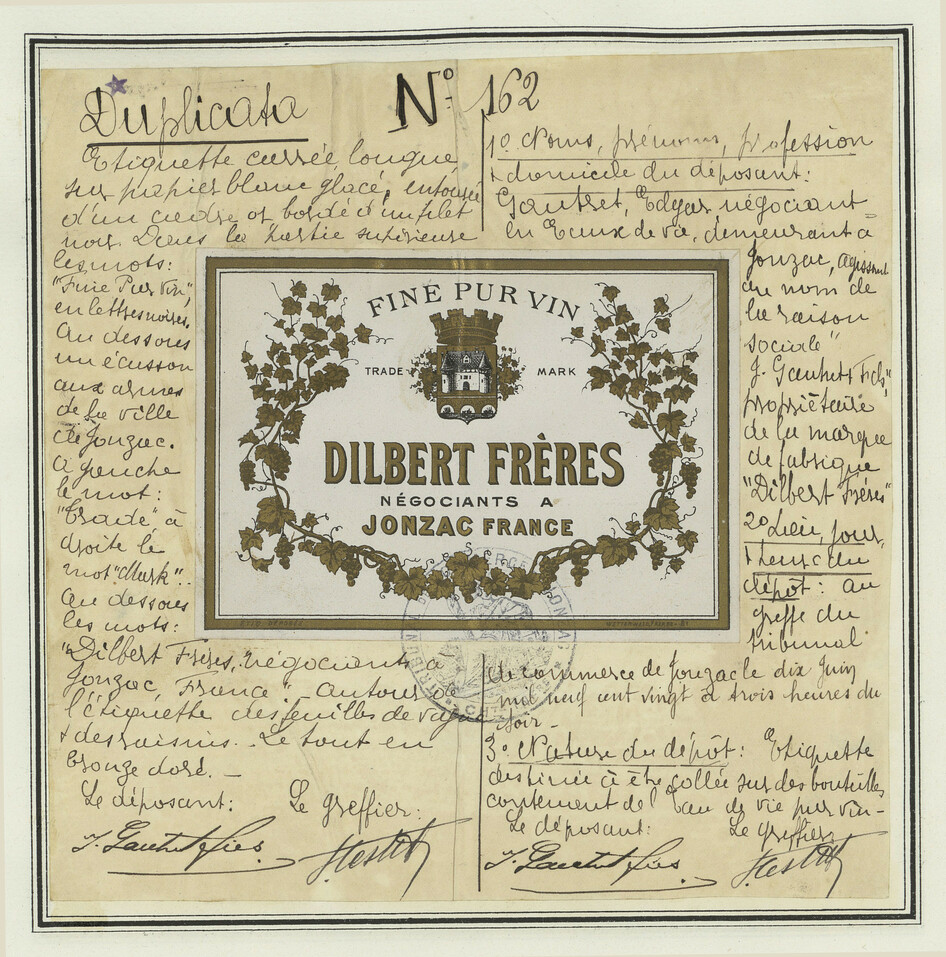 Duplicata
N° 162
Etiquette carrée longue
sur papier blanc glacé, entourée
d'un cadre or bordé d'un filet
noir. Dans la partie supérieure
les mots:
"Fine Pur Vin",
en lettres noires.
Au dessous
un écusson
aux armes
de la ville
de Jonzac.
A gauche
le mot:
"Trade" à
droite le
mot "Mark".
Au dessous
les mots:
"Dilbert Frères, négociants à
Jonzac, France" - autour de
l'étiquette des feuilles de vigne
& des raisins. - Le tout en
bronze doré. -
Le déposant: Le greffier:
J. Gautret & fils
FINE PUR VIN
TRADE MARK
DILBERT FRÈRES
NÉGOCIANTS A
JONZAC FRANCE
1° Noms, prénoms, profession
& domicile du déposant:
Gautret, Edgar, négociant
en Eaux de vie, demeurant à
Jonzac, agissant
au nom de
la raison
sociale "
J. Gautret & Fils"
propriétaire
de la marque
de fabrique
"Dilbert Frères"
2° Lieu, jour,
& heure du
dépôt: au
greffe du
tribunal
de commerce de Jonzac le dix Juin
mil neuf cent vingt à trois heures du
soir -
3° Nature du dépôt: Etiquette
destinée à être collée sur des bouteilles
contenant de l'eau de vie pur vin -
Le déposant: Le greffier
J. Gautret & fils